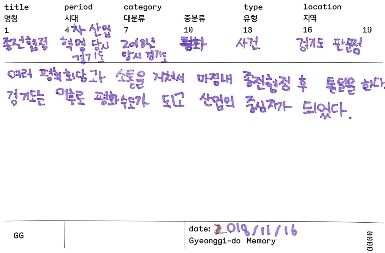 title period category type location
명칭 시대 대분류 중분류 유형 지역
1 4 7 10 13 16 19
종전협정 4차 산업 혁명 당시 경기도 2018년 당시 경기도 평화 사건 경기도 판문점
여러 평화회담과 소통을 거쳐서 마침내 종전협정 후 통일을 한다.
경기도는 이후로 평화수도가 되고 산업의 중심지가 되었다.
date: 2018/11/16
GG Gyeonggi-do Memory 0000